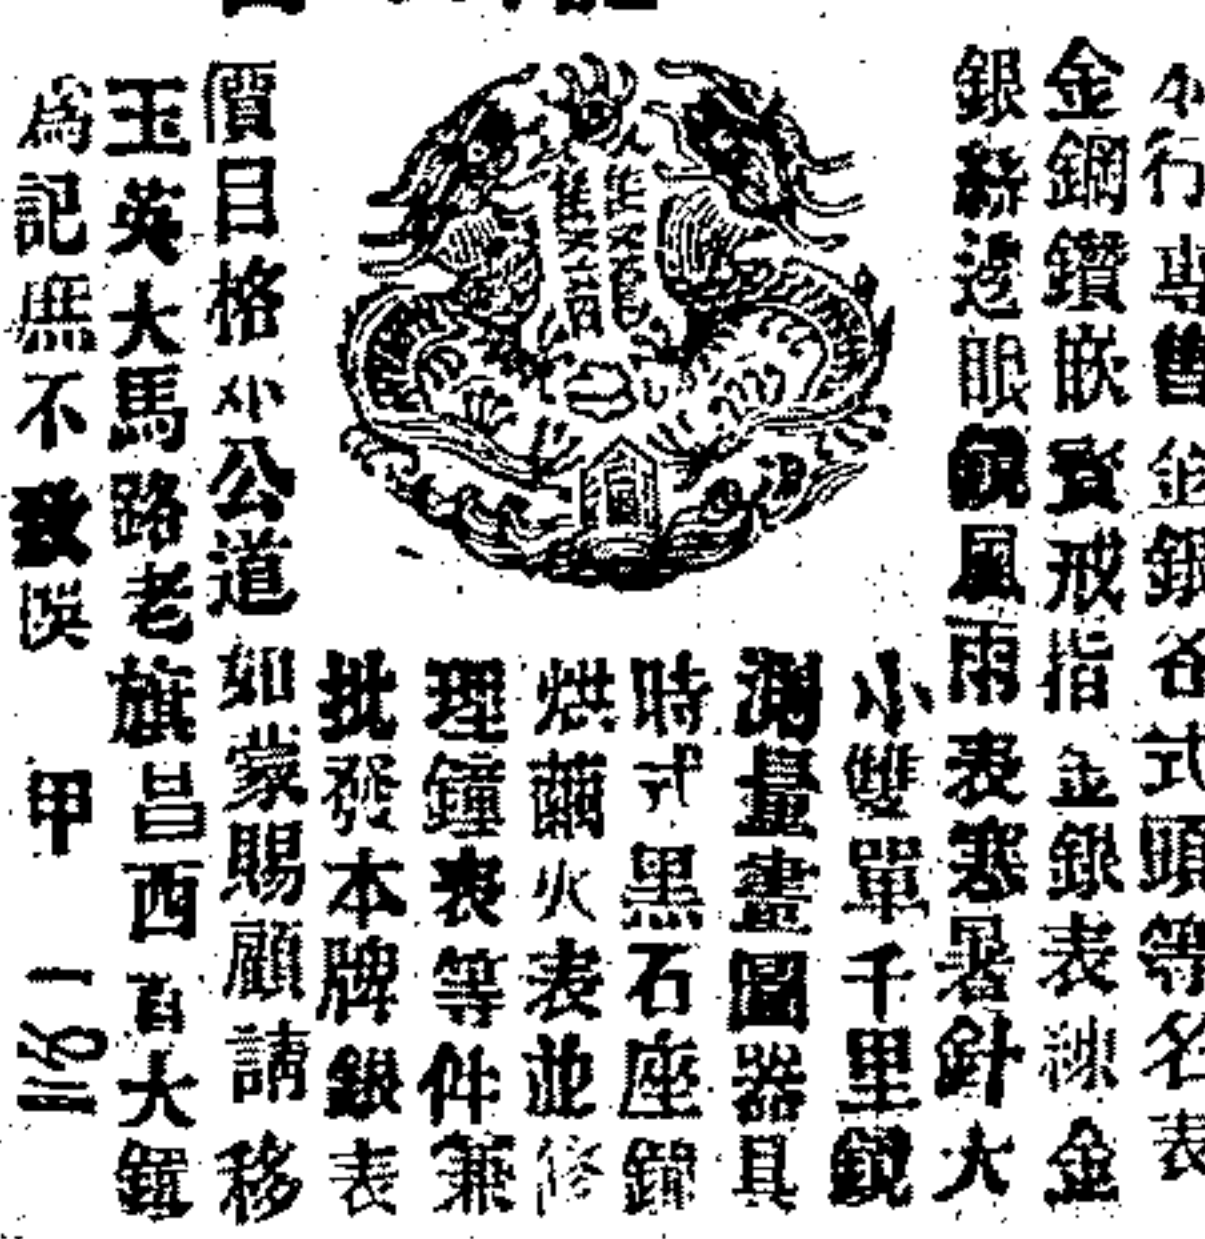 小行專售金銀各式頭等名表
金鋼鑽嵌寶戒指金銀表練金
銀絲遠眼鏡風雨表寒暑針大
小雙單千里鏡
測量畫圖器具
時式黑石座鐘
烘繭火表並修
理鐘表等件兼
批發本牌銀表
價目格外公道如蒙賜顧請移
玉英大馬路老旗昌西首大鐘
為記庶不致悞 甲 一